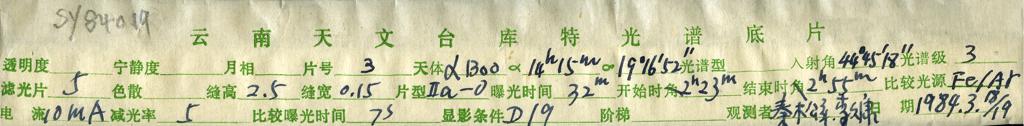 SY84019
云南天文台库特光谱底片
透明度 宁静度 月相 片号 3 天体 αBoo α 14h15m ∞ 19°16′52″ 光谱型 入射角 44°45′18″ 光谱级 3
滤光片 5 色散 缝高 2.5 缝宽 0.15 片型 IIa-O 曝光时间 32m 开始时角 2h23m 结束时角 2h55m 比较光源 Fe/Ar
电流 10mA 减光率 5 比较曝光时间 7s 显影条件 D19 阶梯 观测者 日期 1984.3.18/19